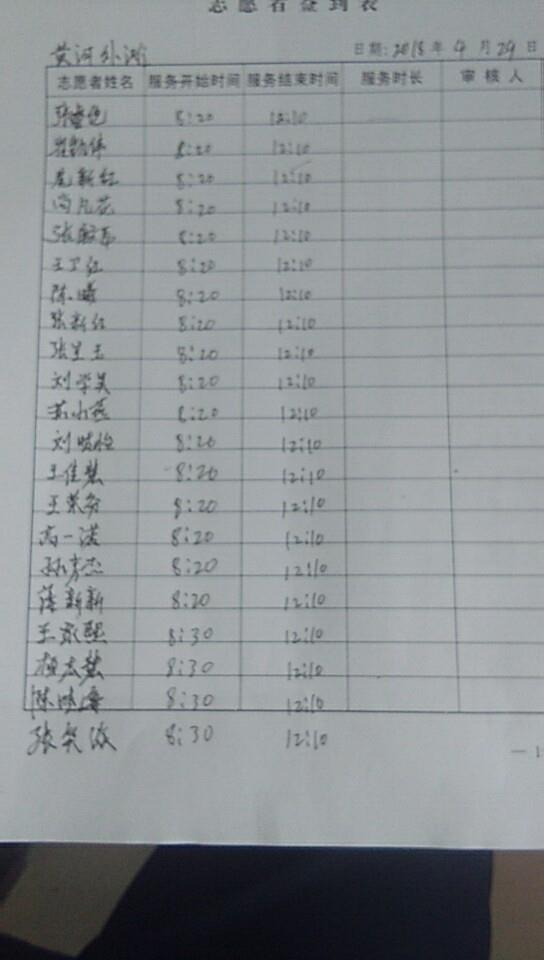 志愿者签到表
黄河外滩 日期:2018年4月29日
志愿者姓名 服务开始时间 服务结束时间 服务时长 审核人
8:20 12:10
8:20 12:10
新红 8:20 12:10
8:20 12:10
张 8:20 12:10
王丁红 8:20 12:10
陈曦 8:20 12:10
张新红 8:20 12:10
张兰玉 8:20 12:10
刘学昊 8:20 12:10
苏小燕 8:20 12:10
刘晓怡 8:20 12:10
王佳慧 8:20 12:10
王荣芬 8:20 12:10
高一诺 8:20 12:10
孙秀杰 8:20 12:10
薛新新 8:20 12:10
王永强 8:30 12:10
8:30 12:10
陈 8:30 12:10
张 8:30 12:10
— 1